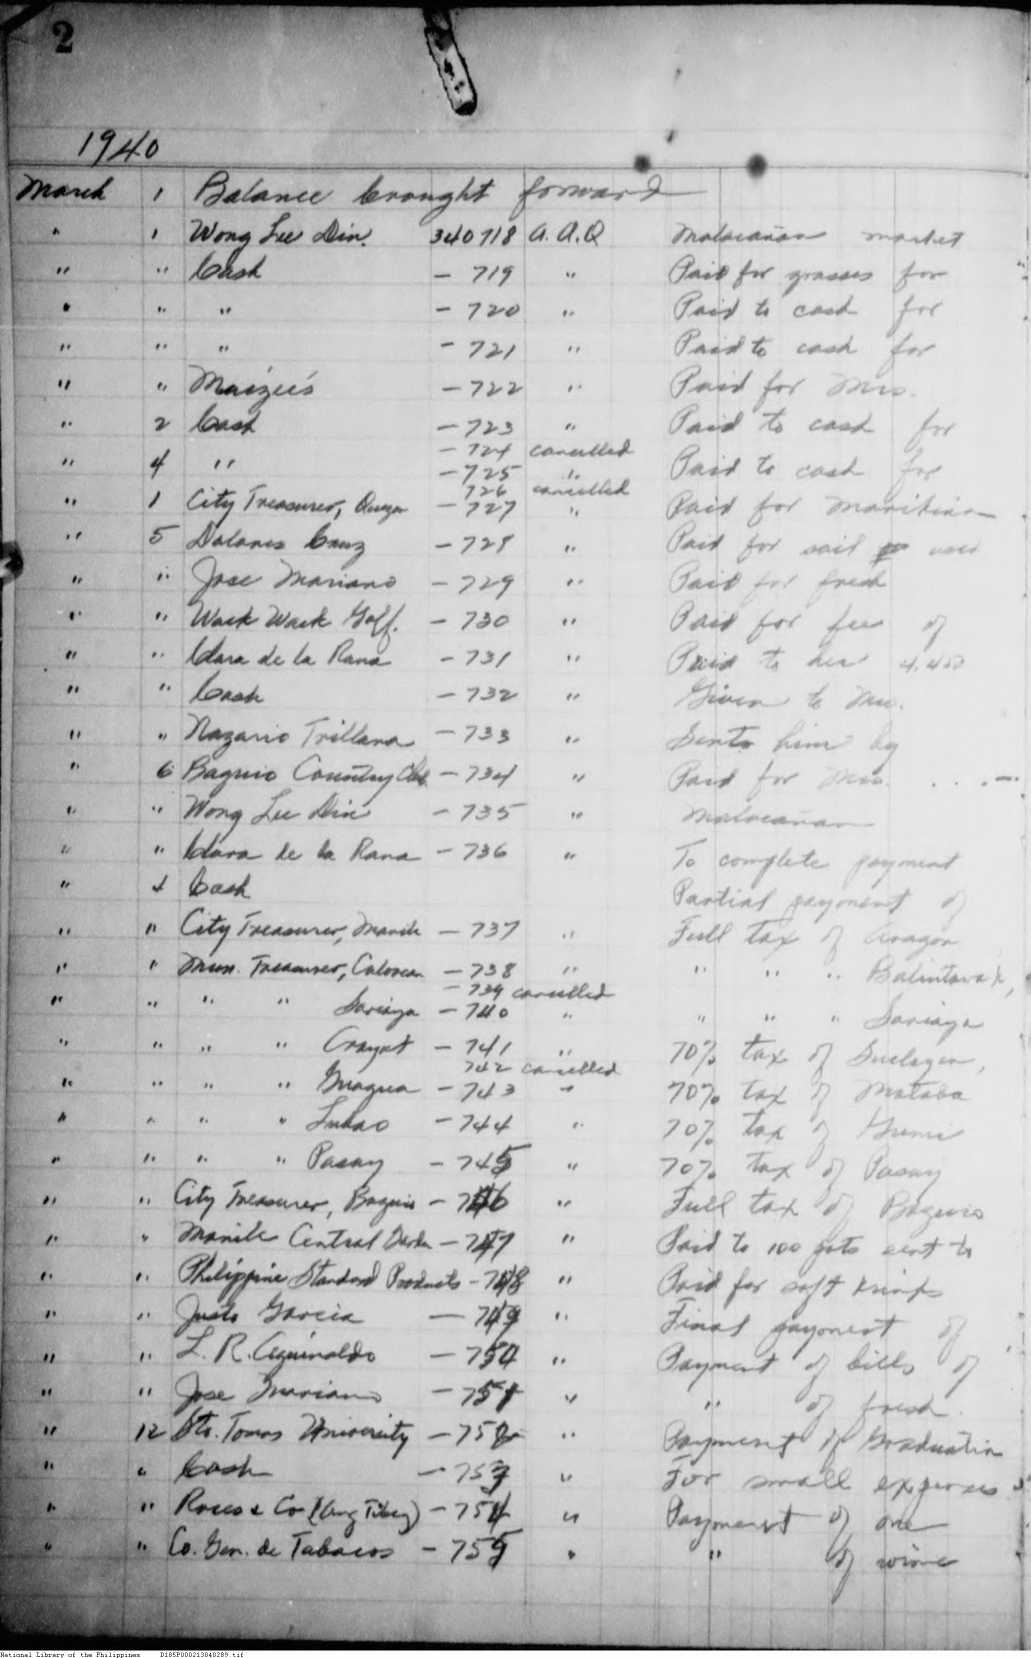 2
1940
March 1 Balance brought forward
" 1 Wong Lee Din. 340718 A. A. Q Malacañan market
" " Cash - 719 " Paid for grasses for
" " " - 720 " Paid to cash for
" " " - 721 " Paid to cash for
" " - 722 " Paid for Mrs.
" 2 Cash - 723 " Paid to cash for
- 724 cancelled
" 4 " - 725 " Paid to cash for
726 cancelled
" 1 City Treasurer, Quezon - 727 " Paid for
" 5 Dolores Cruz - 728 " Paid for soil used
" " Jose Mariano - 729 " Paid for fresh
" " Wack Wack Golf. - 730 " Paid for fee of
" " Clara de la Rama - 731 " Paid to her
" " Cash - 732 " Given to Mrs.
" " Nazario Trillana - 733 " Sent to him by
" 6 Baguio Country Club - 734 " Paid for Mrs.
" " Wong Lee Din - 735 " Malacañan
" " Clara de la Rama - 736 " To complete payment
" 4 Cash Partial payment of
" " City Treasurer, Manila - 737 " Full tax of Aragon
" " Mun. Treasurer, Caloocan - 738 " " " " Balintawak,
- 739 cancelled
" " " " Sariaya - 740 " " " " Sariaya
" " " " Arayat - 741 " 70% tax of
742 cancelled
" " " " Guagua - 743 " 70% tax of Mataba
" " " " Lubao - 744 " 70% tax of Gumi
" " " " Pasay - 745 " 70% tax of Pasay
" " City Treasurer, Baguio - 746 " Full tax of Baguio
" " Manila Central - 747 " Paid to 100 pots sent to
" " Philippine Standard Products - 748 " Paid for soft drinks
" " Justo Garcia - 749 " Final payment of
" " L. R. Aguinaldo - 750 " Payment of bills of
" " Jose Mariano - 751 " " of fresh
" 12 Sto. Tomas University - 752 " Payment of Graduation
" " Cash - 753 " For small expenses
" " Roces & Co - 754 " Payment of one
" " Co. Gen. de Tabacos - 755 " " of wine
National Library of the Philippines D185P000213040289.tif